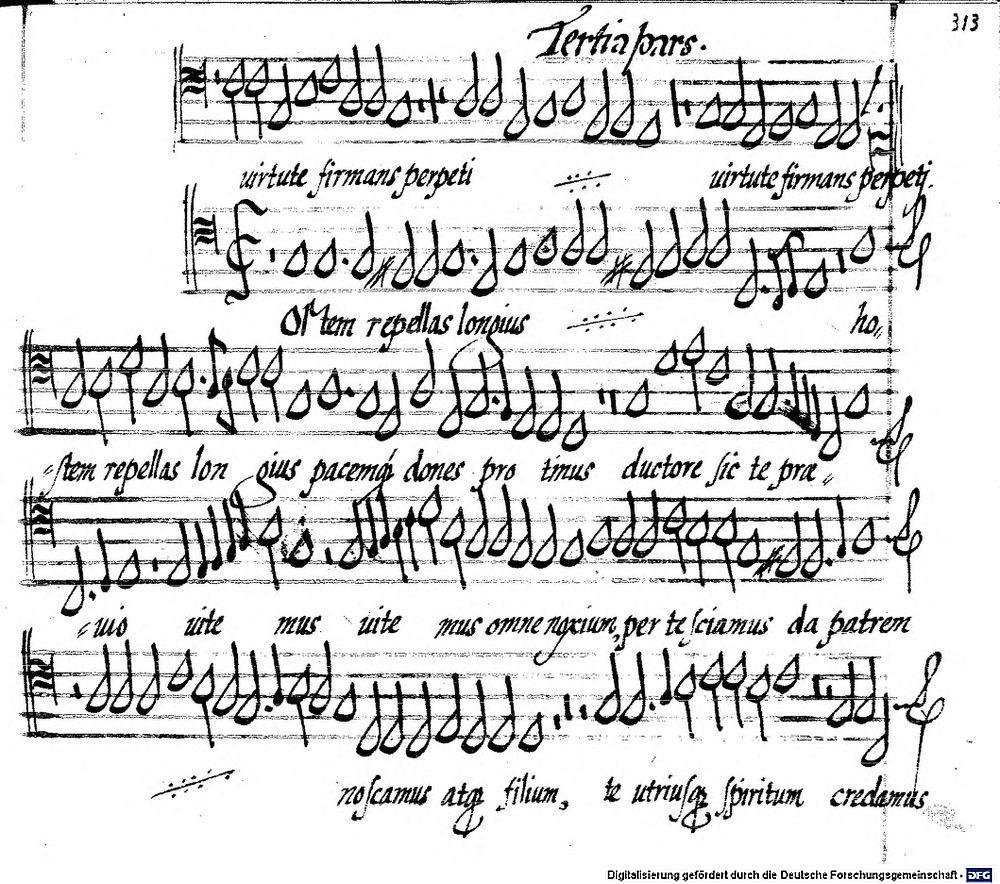 313
Tertia pars.
uirtute firmans perpeti uirtute firmans perpeti.
OStem repellas longius ho„
„stem repellas lon gius pacemq́ dones pro tinus ductore sic te præ„
„uio uite mus uite mus omne noxium, per te sciamus da patrem
noscamus atqꝫ filium, te utriusqꝫ spiritum credamus
Digitalisierung gefördert durch die Deutsche Forschungsgemeinschaft - DFG